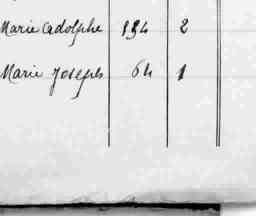 Marie Adolphe 194 2
Marie Joseph 64 1